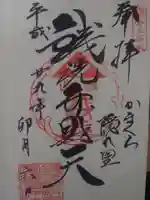 奉拝
かまくら
隠れ里
銭洗弁財天
平成廿九年
卯月